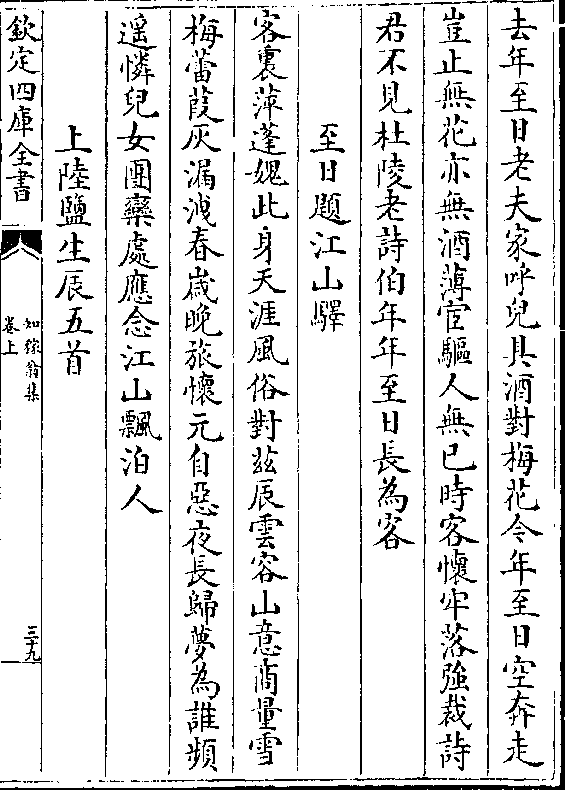 去年至日老夫家呼兒具酒對梅花今年至日空奔走
豈止無花亦無酒薄宦驅人無已時客懷牢落強裁詩
君不見杜陵老詩伯年年至日長為客
至日題江山驛
客裏萍蓬媿此身天涯風俗對兹辰雲容山意商量雪
梅蕾葭灰漏洩春嵗晚旅懷元自惡夜長歸夢為誰頻
遥憐兒女團欒處應念江山飄泊人
上陸鹽生辰五首
欽定四庫全書
如稼翁集
卷上
三十九